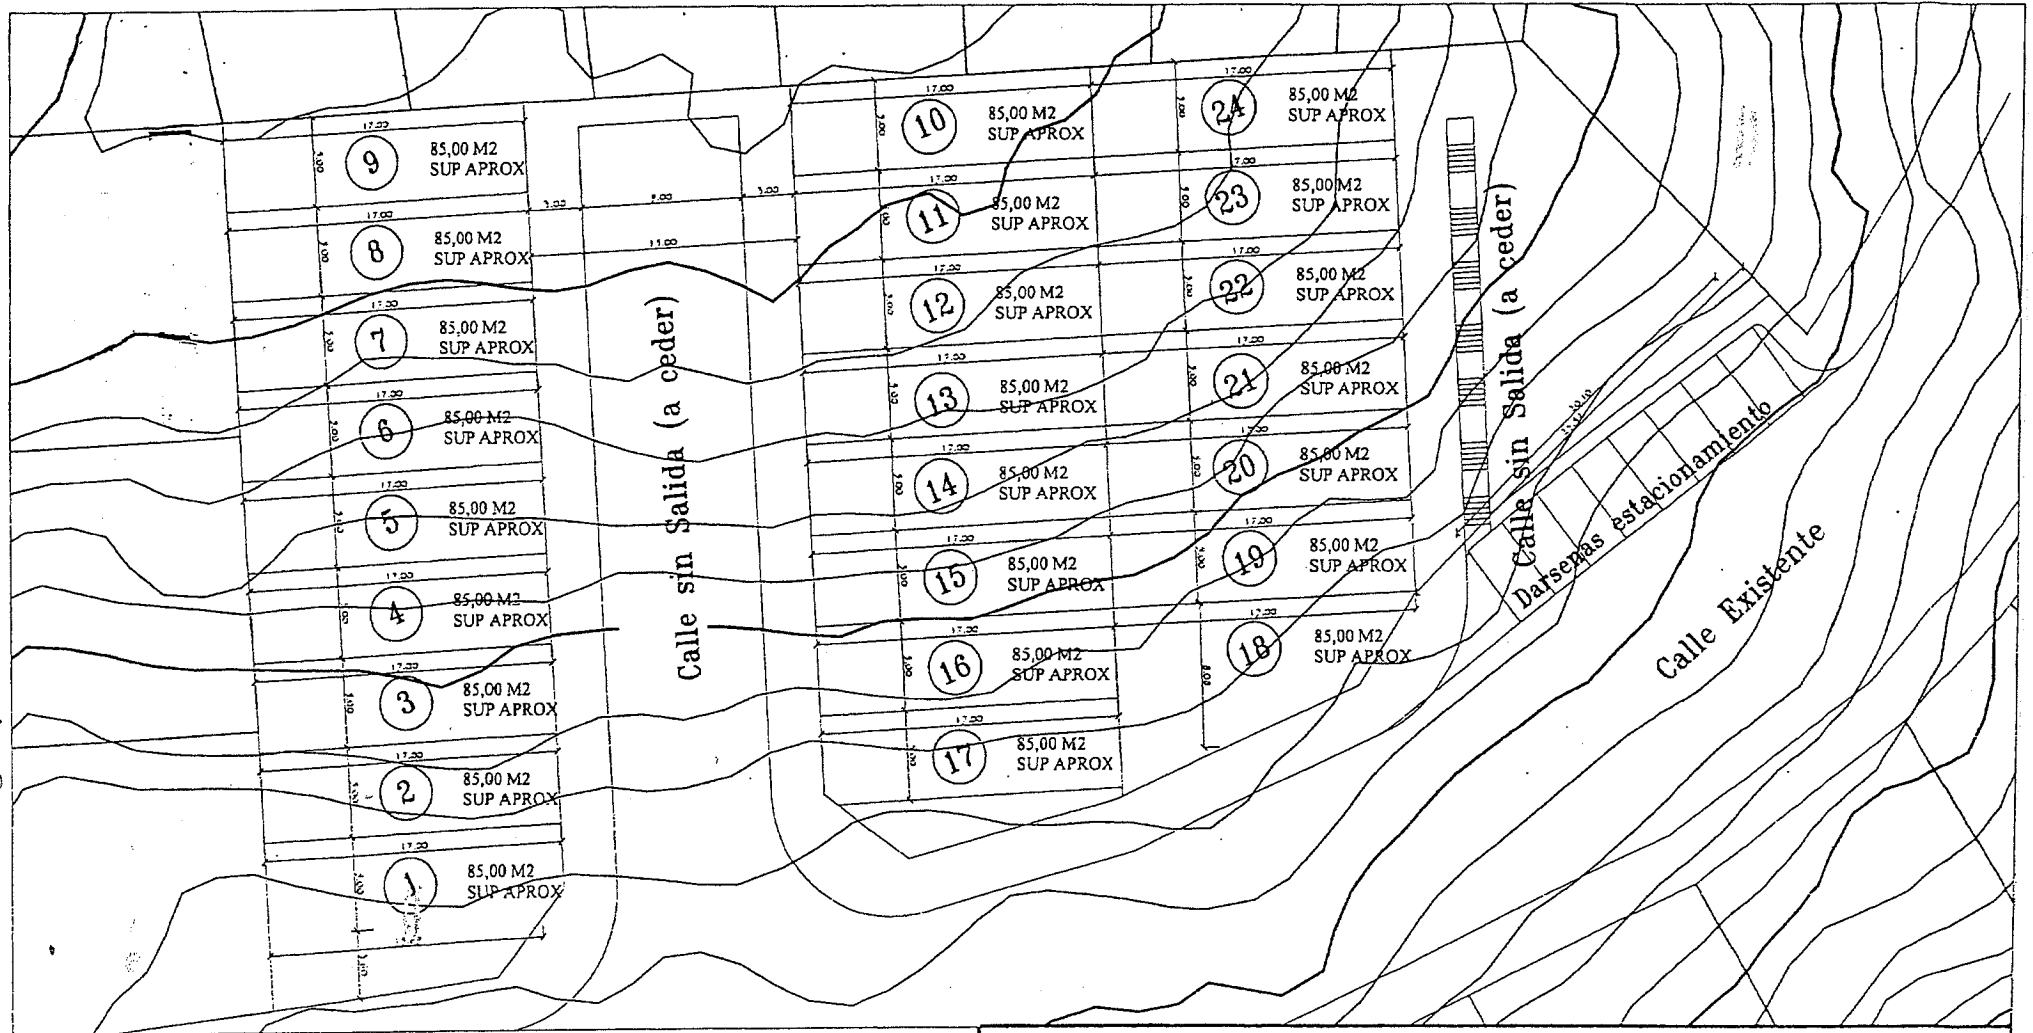 17.00
9
85,00 M2
SUP APROX
5.00
17.00
8
85,00 M2
SUP APROX
5.00
17.00
7
85,00 M2
SUP APROX
5.00
17.00
6
85,00 M2
SUP APROX
5.00
17.00
5
85,00 M2
SUP APROX
5.00
17.00
4
85,00 M2
SUP APROX
5.00
17.00
3
85,00 M2
SUP APROX
5.00
17.00
2
85,00 M2
SUP APROX
5.00
17.00
1
85,00 M2
SUP APROX
5.00
3.00
3.00
Calle sin Salida (a ceder)
17.00
10
85,00 M2
SUP APROX
5.00
17.00
11
85,00 M2
SUP APROX
17.00
12
85,00 M2
SUP APROX
5.00
17.00
13
85,00 M2
SUP APROX
5.00
17.00
14
85,00 M2
SUP APROX
5.00
17.00
15
85,00 M2
SUP APROX
5.00
17.00
16
85,00 M2
SUP APROX
5.00
17.00
17
85,00 M2
SUP APROX
5.00
17.00
24
85,00 M2
SUP APROX
5.00
17.00
23
85,00 M2
SUP APROX
5.00
17.00
22
85,00 M2
SUP APROX
5.00
17.00
21
85,00 M2
SUP APROX
5.00
17.00
20
85,00 M2
SUP APROX
5.00
17.00
19
85,00 M2
SUP APROX
5.00
17.00
18
85,00 M2
SUP APROX
8.00
Calle sin Salida (a ceder)
Darsenas estacionamiento
Calle Existente